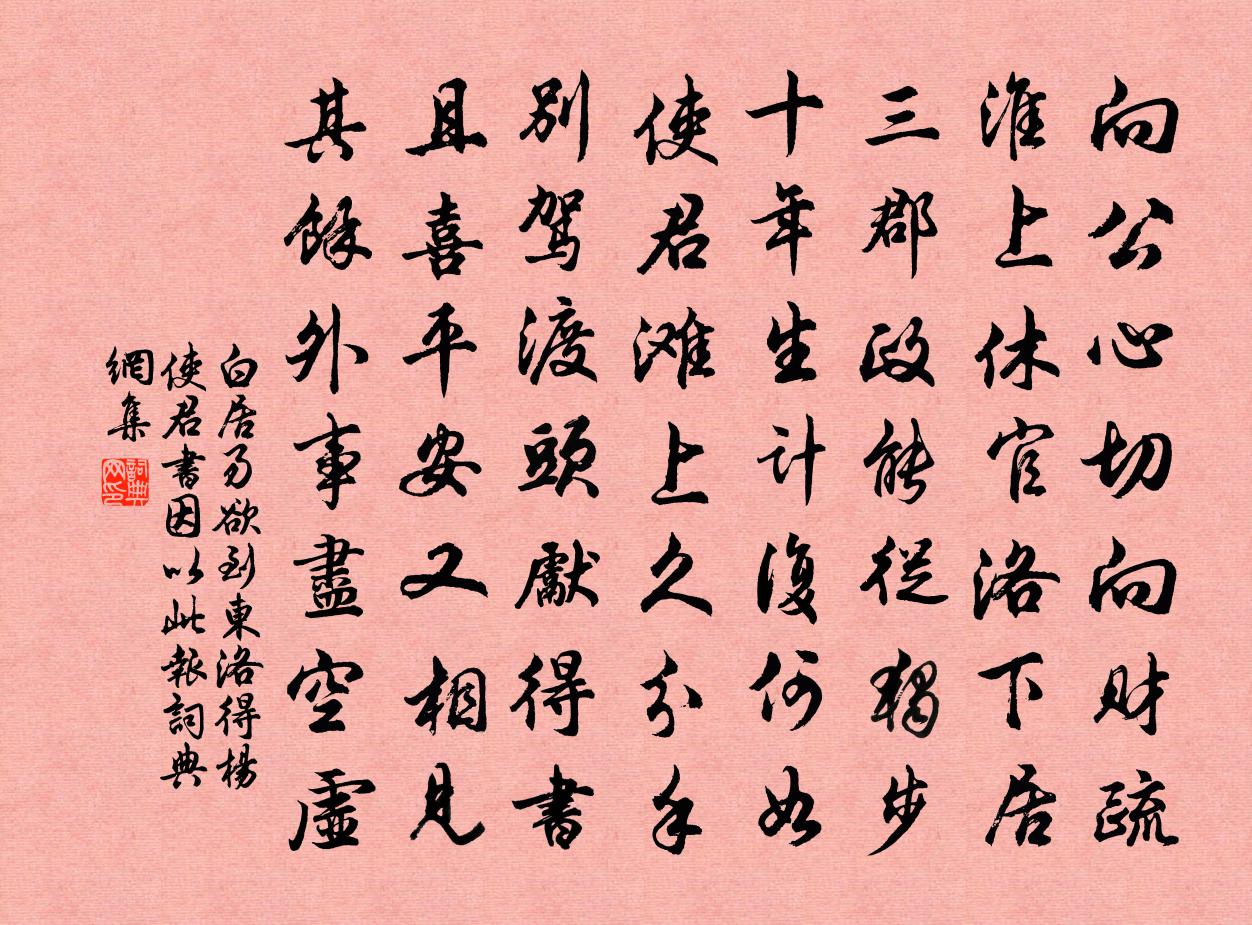 向公心切向財疏
淮上休官洛下居
三郡政能從獨步
十年生計復何如
使君灘上久分手
別駕渡頭獻得書
且喜平安又相見
其餘外事盡空虛
白居易欲到東洛得楊
使君書因以此報詞典
網集
詞典
网印